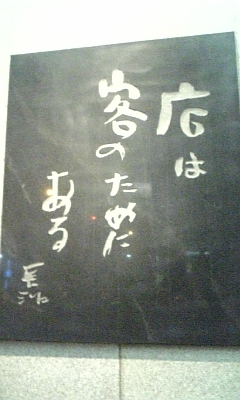 店は
客のために
ある